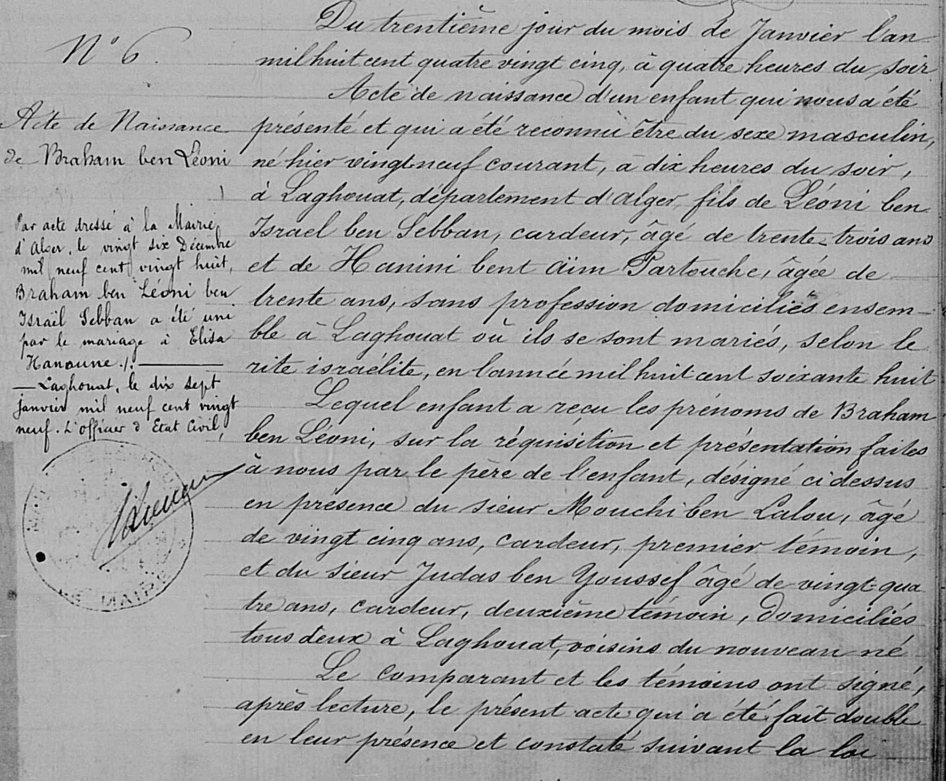 N° 6.
Acte de Naissance
de Braham ben Léoni
Par acte dressé à la Mairie
d'Alger, le vingt six Décembre
mil neuf cent vingt huit,
Braham ben Léoni ben
Israël Sebban a été uni
par le mariage à Elisa
Hanoune ./.
Laghouat, le dix sept
janvier mil neuf cent vingt
neuf. L'officier d'Etat Civil,
MAIRE
Du trentième jour du mois de Janvier l'an
mil huit cent quatre vingt cinq, à quatre heures du soir
Acte de naissance d'un enfant qui nous a été
présenté et qui a été reconnu être du sexe masculin,
né hier vingt neuf courant, à dix heures du soir,
à Laghouat, département d'Alger fils de Léoni ben
Israel ben Sebban, cardeur, âgé de trente-trois ans
et de Hanini bent aïm Partouche, âgée de
trente ans, sans profession domiciliés ensem-
ble à Laghouat où ils se sont mariés, selon le
rite israélite, en l'année mil huit cent soixante huit
Lequel enfant a reçu les prénoms de Braham
ben Léoni, sur la réquisition et présentation faites
à nous par le père de l'enfant, désigné ci dessus
en présence du sieur Mouchi ben Lalou, âgé
de vingt cinq ans, cardeur, premier témoin,
et du sieur Judas ben Youssef âgé de vingt-qua
tre ans, cardeur, deuxième témoin, domiciliés
tous deux à Laghouat, voisins du nouveau né
Le comparant et les témoins ont signé,
après lecture, le présent acte qui a été fait double
en leur présence et constaté suivant la loi